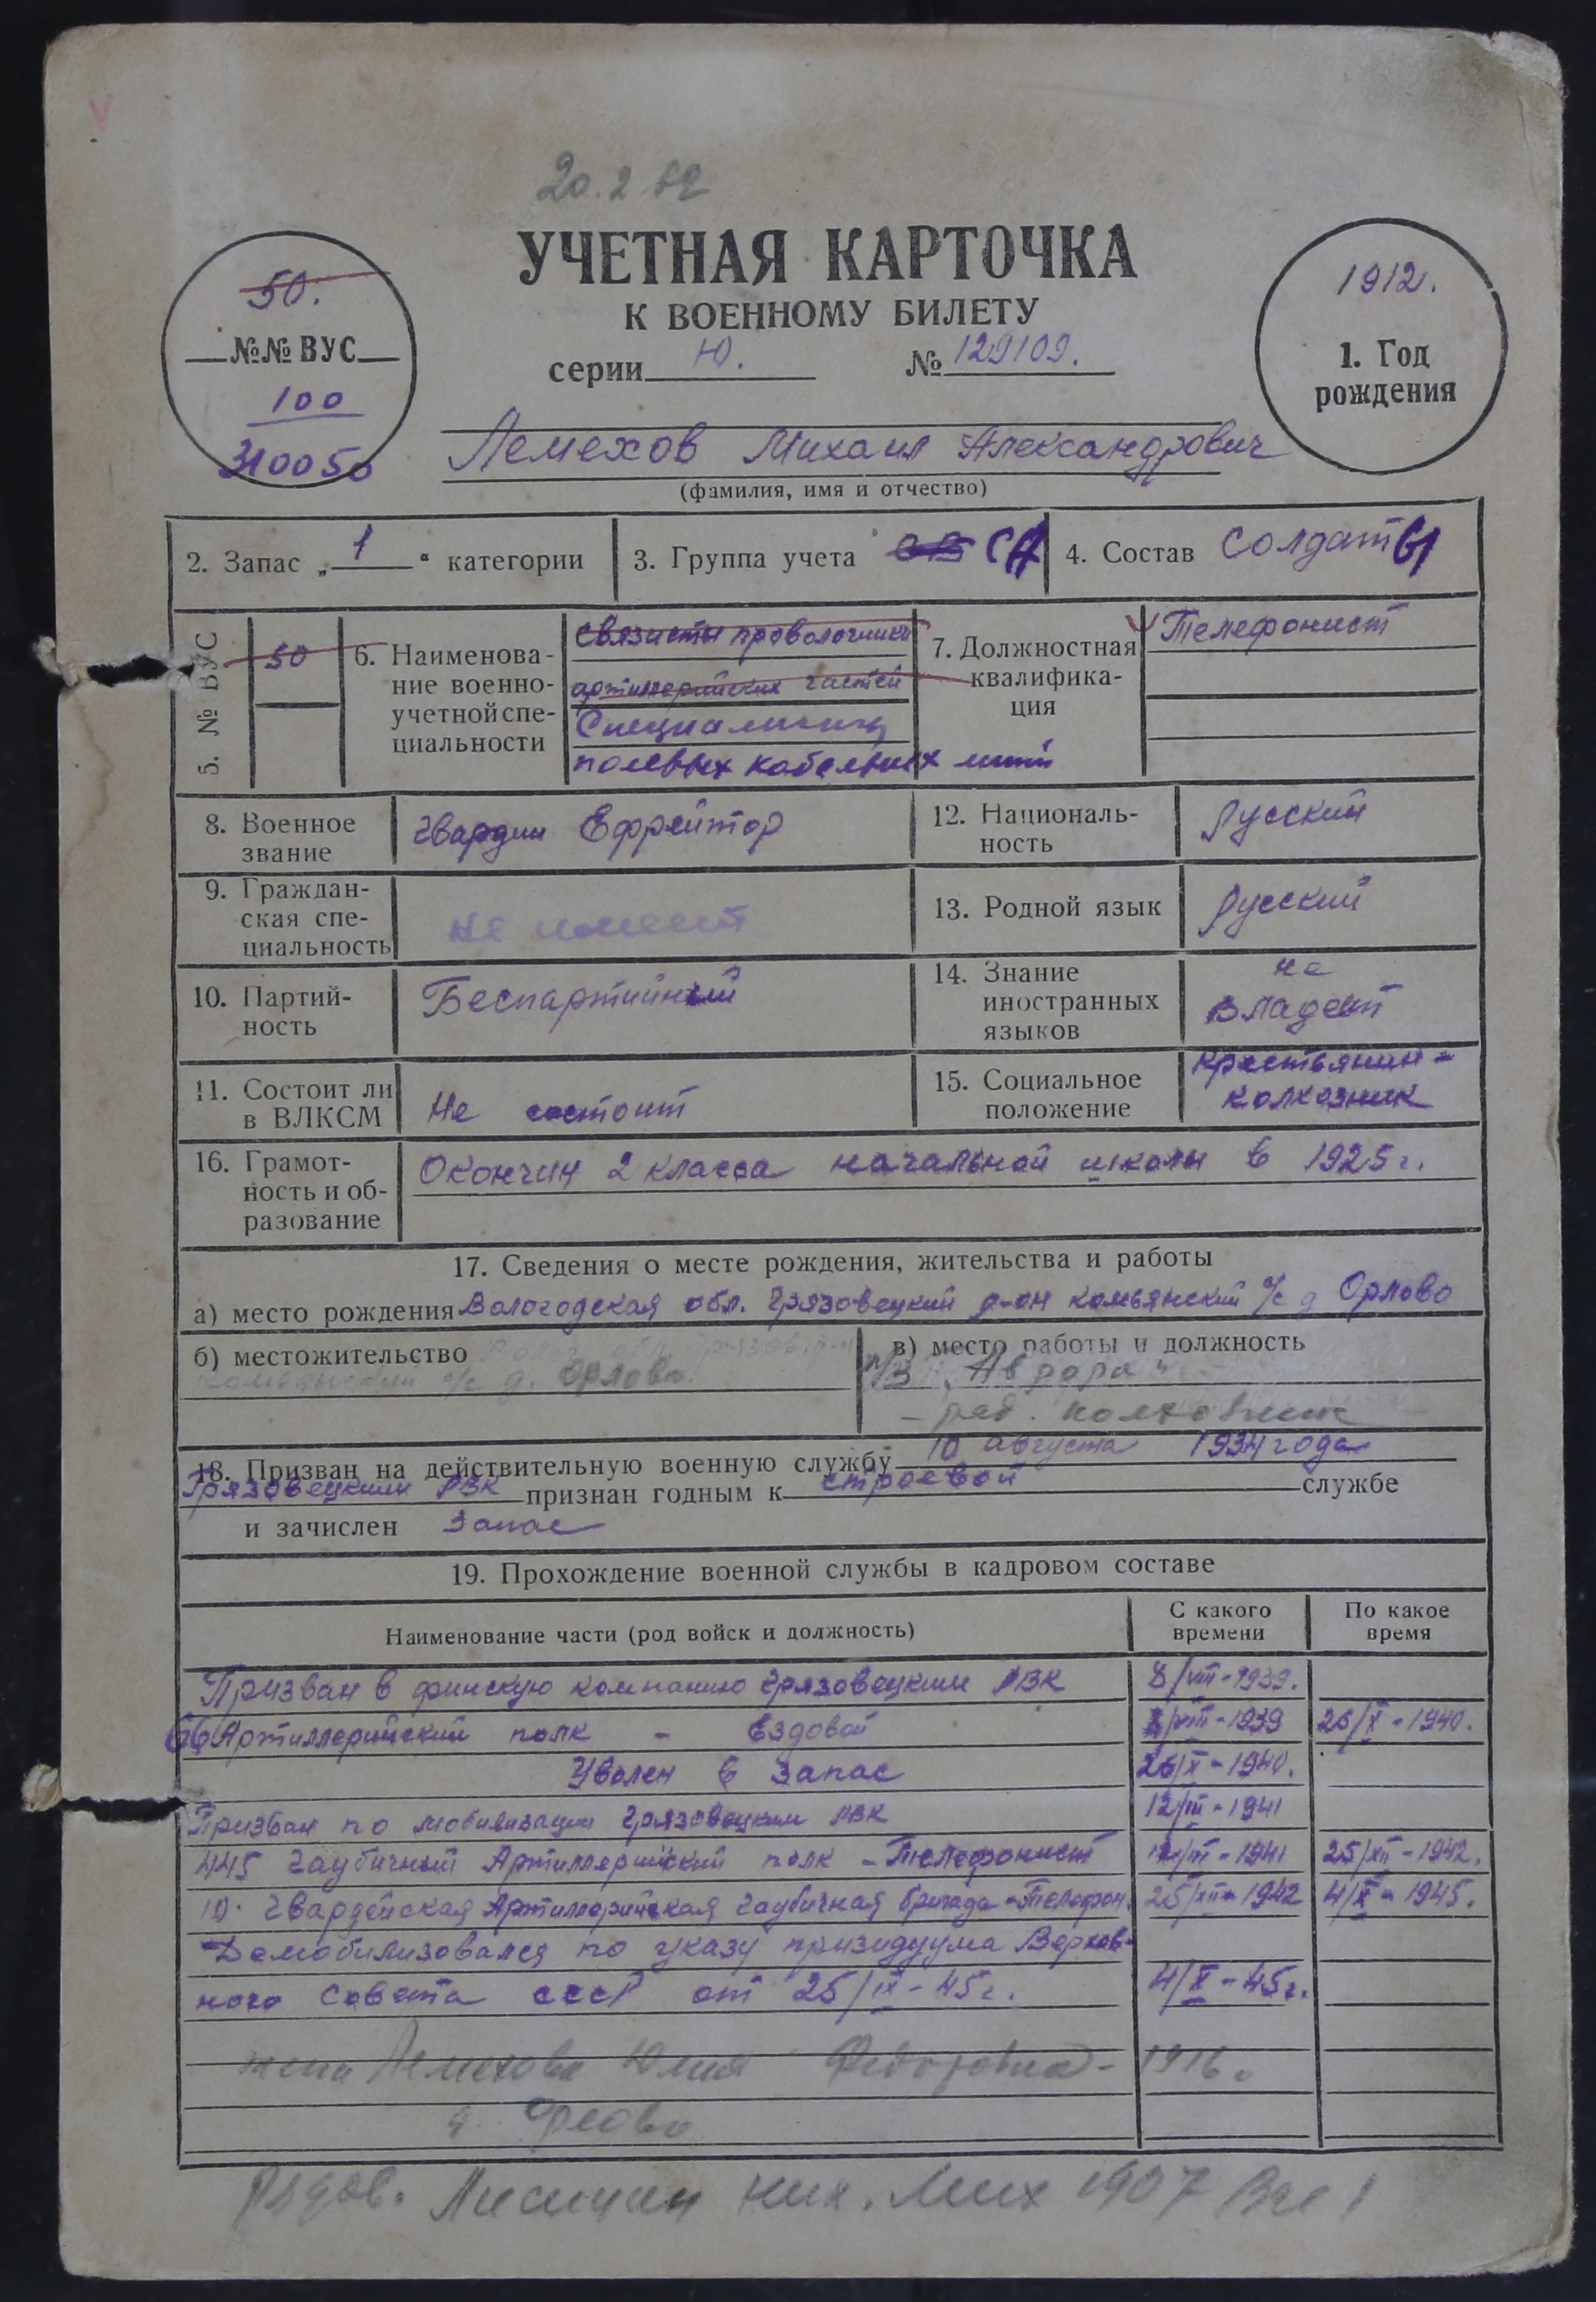 УЧЕТНАЯ КАРТОЧКА
К ВОЕННОМУ БИЛЕТУ
серии Ю. № 129109.
50.
№№ ВУС
100
310050
1912.
1. Год
рождения
Лемехов Михаил Александрович
(фамилия, имя и отчество)
2. Запас „ 1 “ категории
3. Группа учета СА
4. Состав Солдаты
5. № ВУС
50
6. Наименова-
ние военно-
учетной спе-
циальности
связисты проволочники
артиллерийских частей
Специалисты
полевых кабельных
7. Должностная
квалифика-
ция
Телефонист
8. Военное
звание
гвардии Ефрейтор
12. Националь-
ность
Русский
9. Граждан-
ская спе-
циальность
не имеет
13. Родной язык Русский
10. Партий-
ность
Беспартийный
14. Знание
иностранных
языков
не
владеет
11. Состоит ли
в ВЛКСМ
Не состоит
15. Социальное
положение
крестьянин-
колхозник
16. Грамот-
ность и об-
разование
Окончил 2 класса начальной школы в 1925 г.
17. Сведения о месте рождения, жительства и работы
а) место рождения Вологодская обл. Грязовецкий р-он комьянский с/с д Орлово
б) местожительство
комьянский с/с д. Орлово.
в) место работы и должность
„Аврора“
18. Призван на действительную военную службу 10 августа 1934 года
Грязовецким РВК признан годным к строевой службе
и зачислен Запас
19. Прохождение военной службы в кадровом составе
Наименование части (род войск и должность)
С какого
времени
По какое
время
Призван в финскую компанию Грязовецким РВК 8/VIII-1939.
66 Артиллерийский полк - Ездовой 8/VIII-1939 26/X-1940.
Уволен в запас 26/X-1940.
Призван по мобилизации Грязовецким РВК 12/III-1941
445 гаубичный Артиллерийский полк - Телефонист 12/III-1941 25/XII-1942.
10. Гвардейская Артиллерийская гаубичная бригада - Телефон. 25/XII-1942 4/X-1945.
Демобилизовался по указу призидуума Верхов-
ного Совета СССР от 25/IX-45 г. 4/X-45г.
жена Лемехова Юлия Федоровна - 1916.
д. Орлово
1907